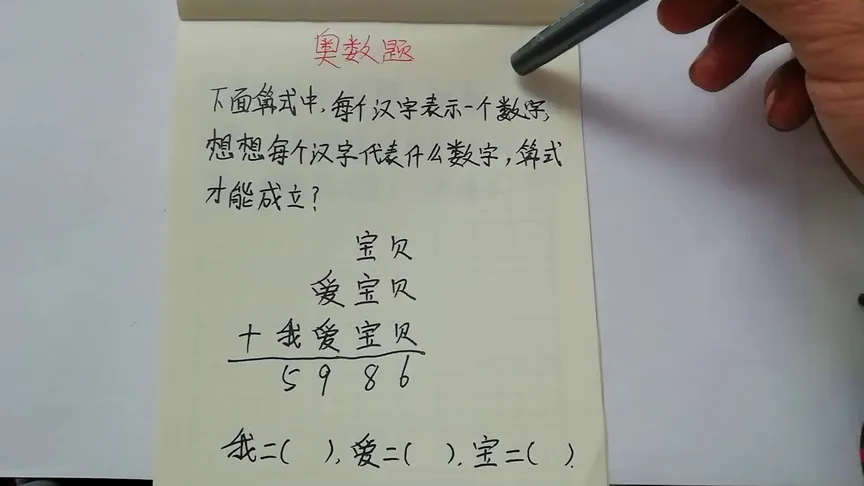 奥数题
下面算式中,每个汉字表示一个数字,
想想每个汉字代表什么数字,算式
才能成立?
宝贝
爱宝贝
+我爱宝贝
5986
我=( ),爱=( ),宝=( ).